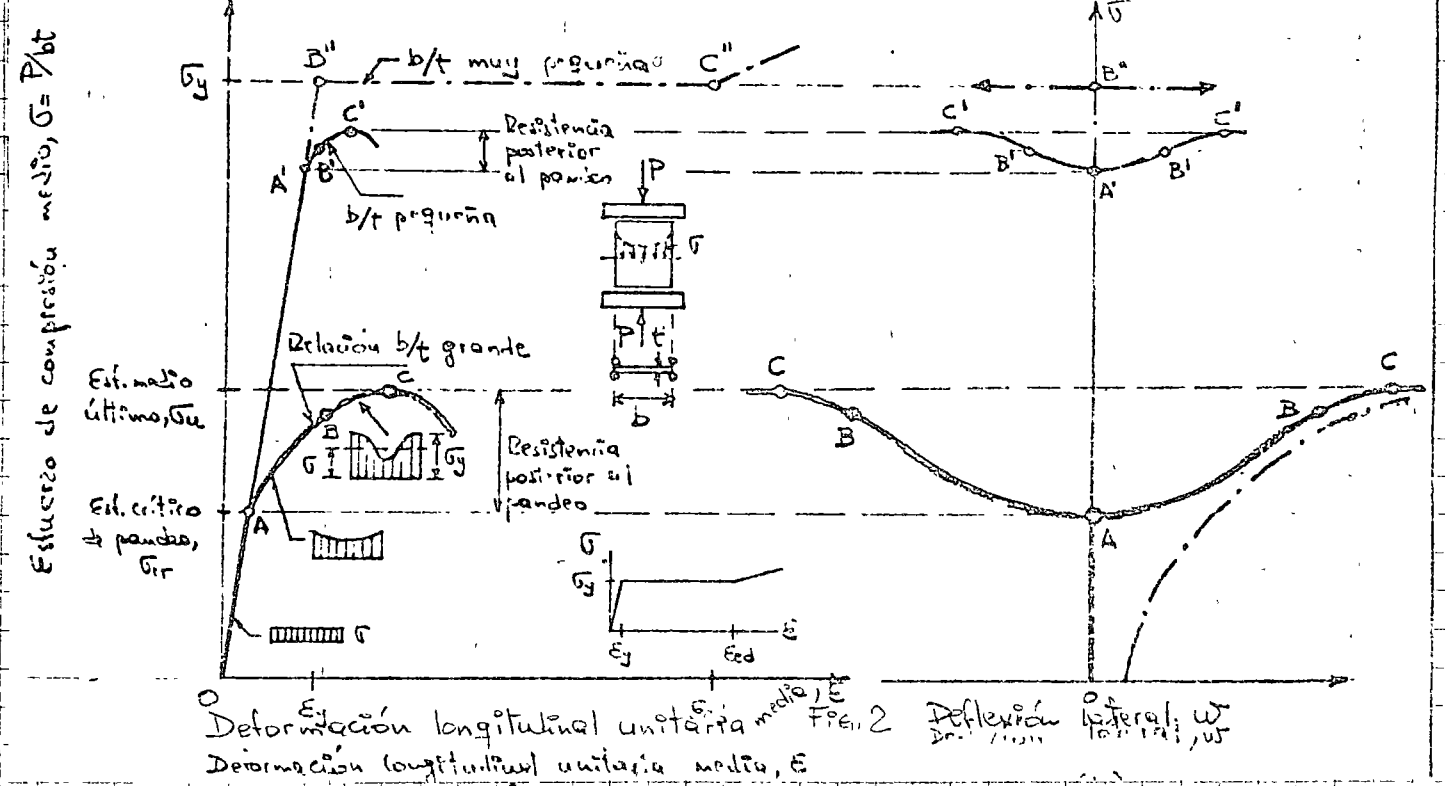 Esfuerzo de compresión medio, σ = P/bt
σy
B"
b/t muy pequeñas
C"
C'
A'
B'
Resistencia
posterior
al pandeo
b/t pequeña
P
σ
P
t
b
Relación b/t grande
Esf. medio
último, σu
C
B
σ
σy
Resistencia
posterior al
pandeo
Esf. crítico
de pandeo,
σcr
A
σ
σ
σy
εy
εcd
ε
O
εy
ε
Deformación longitudinal unitaria media, ε
Fig. 2
Deformación longitudinal unitaria media, ε
σ
B"
C'
C'
B'
B'
A'
C
C
B
B
A
O
Deflexión lateral, w